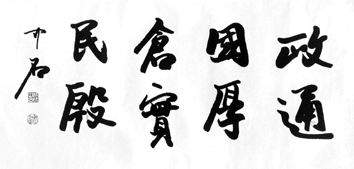 政通
國厚
倉實
民殷
中石